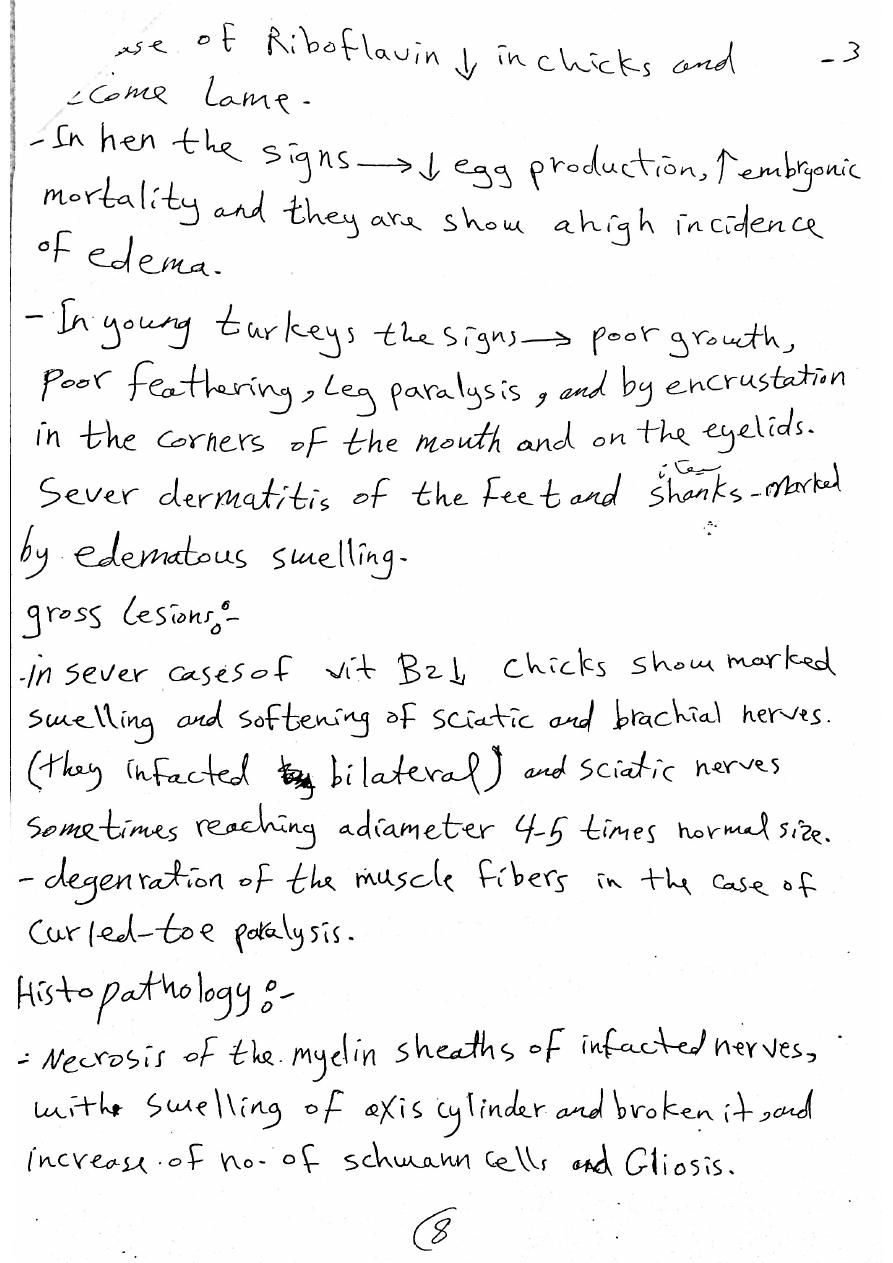 of Riboflavin ↓ in chicks and -3
come lame.
- In hen the signs → ↓ egg production, ↑ embryonic
mortality and they are show a high incidence
of edema.
- In young turkeys the signs → poor growth,
Poor feathering, Leg paralysis, and by encrustation
in the corners of the mouth and on the eyelids.
Sever dermatitis of the Feet and shanks - marked
by edematous swelling.
gross Lesions:-
-in sever cases of vit B2↓ chicks show marked
swelling and softening of sciatic and brachial nerves.
(they infacted bilateral) and sciatic nerves
Sometimes reaching a diameter 4-5 times normal size.
- degenration of the muscle fibers in the case of
Curled-toe paralysis.
Histopathology:-
- Necrosis of the myelin sheaths of infacted nerves,
with swelling of axis cylinder and broken it, and
increase of no. of schwann cells and Gliosis.
8